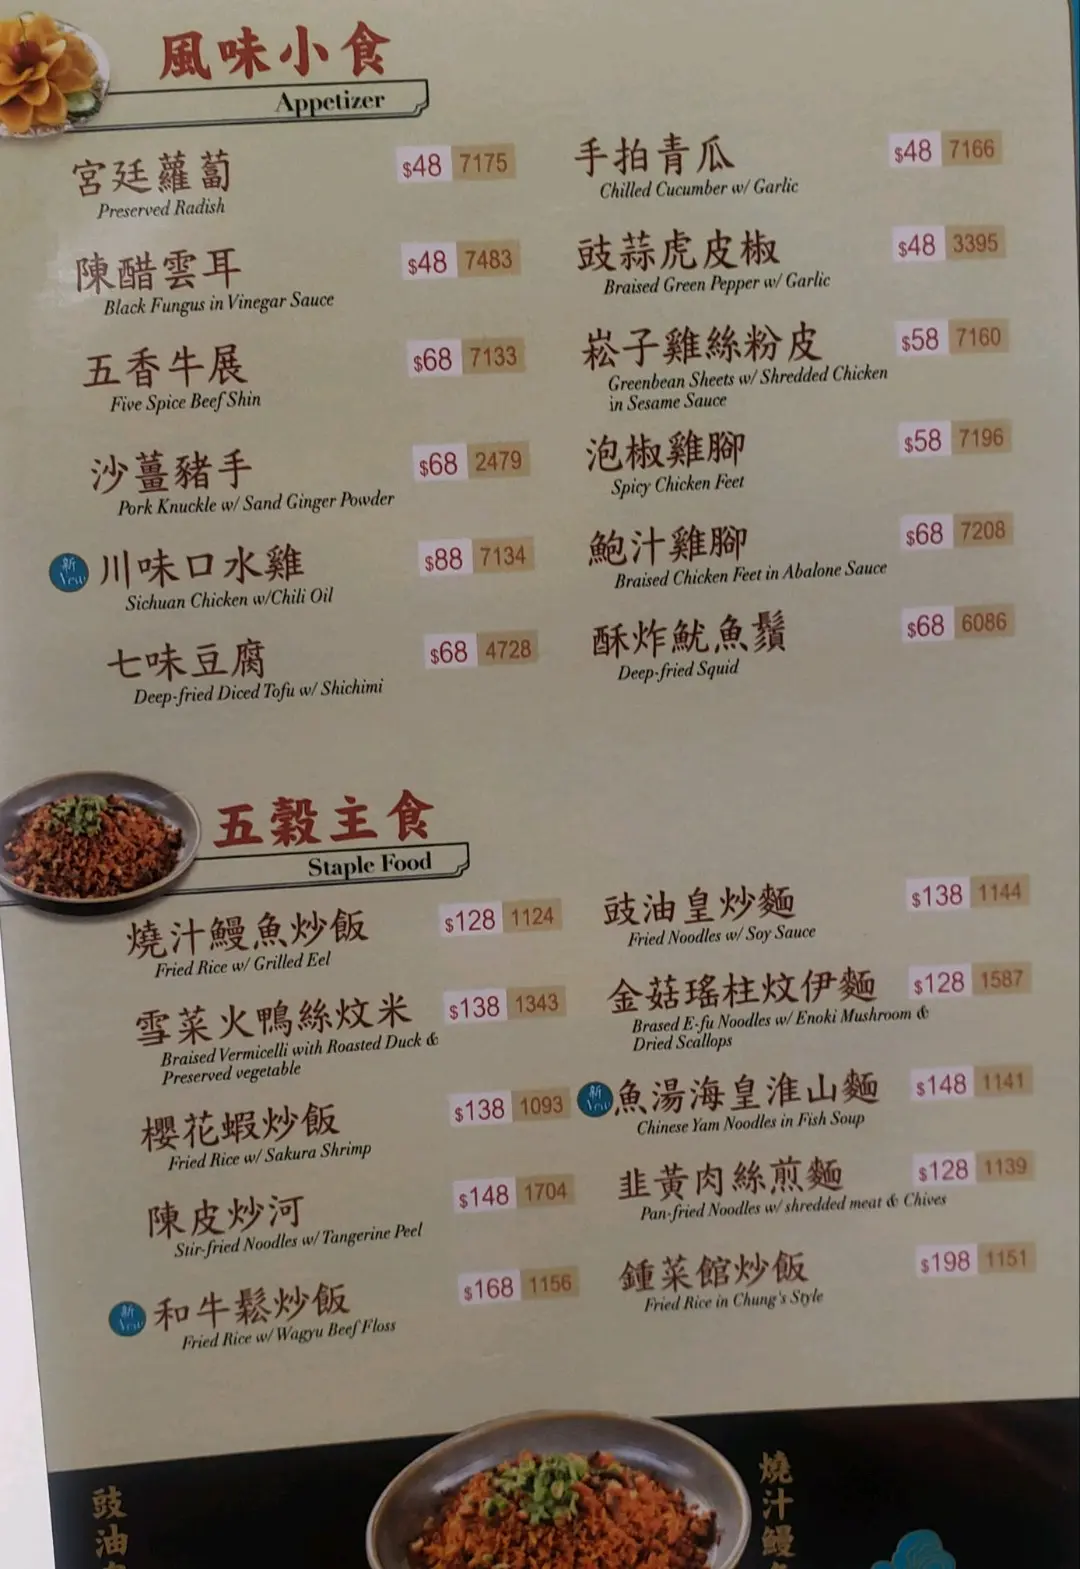 風味小食
Appetizer
宮廷蘿蔔 $48 7175
Preserved Radish
陳醋雲耳 $48 7483
Black Fungus in Vinegar Sauce
五香牛展 $68 7133
Five Spice Beef Shin
沙薑豬手 $68 2479
Pork Knuckle w/ Sand Ginger Powder
新 New 川味口水雞 $88 7134
Sichuan Chicken w/Chili Oil
七味豆腐 $68 4728
Deep-fried Diced Tofu w/ Shichimi
手拍青瓜 $48 7166
Chilled Cucumber w/ Garlic
豉蒜虎皮椒 $48 3395
Braised Green Pepper w/ Garlic
崧子雞絲粉皮 $58 7160
Greenbean Sheets w/ Shredded Chicken
in Sesame Sauce
泡椒雞腳 $58 7196
Spicy Chicken Feet
鮑汁雞腳 $68 7208
Braised Chicken Feet in Abalone Sauce
酥炸魷魚鬚 $68 6086
Deep-fried Squid
五穀主食
Staple Food
燒汁鰻魚炒飯 $128 1124
Fried Rice w/ Grilled Eel
雪菜火鴨絲炆米 $138 1343
Braised Vermicelli with Roasted Duck &
Preserved vegetable
櫻花蝦炒飯 $138 1093
Fried Rice w/ Sakura Shrimp
陳皮炒河 $148 1704
Stir-fried Noodles w/ Tangerine Peel
新 New 和牛鬆炒飯 $168 1156
Fried Rice w/ Wagyu Beef Floss
豉油皇炒麵 $138 1144
Fried Noodles w/ Soy Sauce
金菇瑤柱炆伊麵 $128 1587
Brased E-fu Noodles w/ Enoki Mushroom &
Dried Scallops
新 New 魚湯海皇淮山麵 $148 1141
Chinese Yam Noodles in Fish Soup
韭黃肉絲煎麵 $128 1139
Pan-fried Noodles w/ shredded meat & Chives
鍾菜館炒飯 $198 1151
Fried Rice in Chung's Style
豉油
燒汁鰻